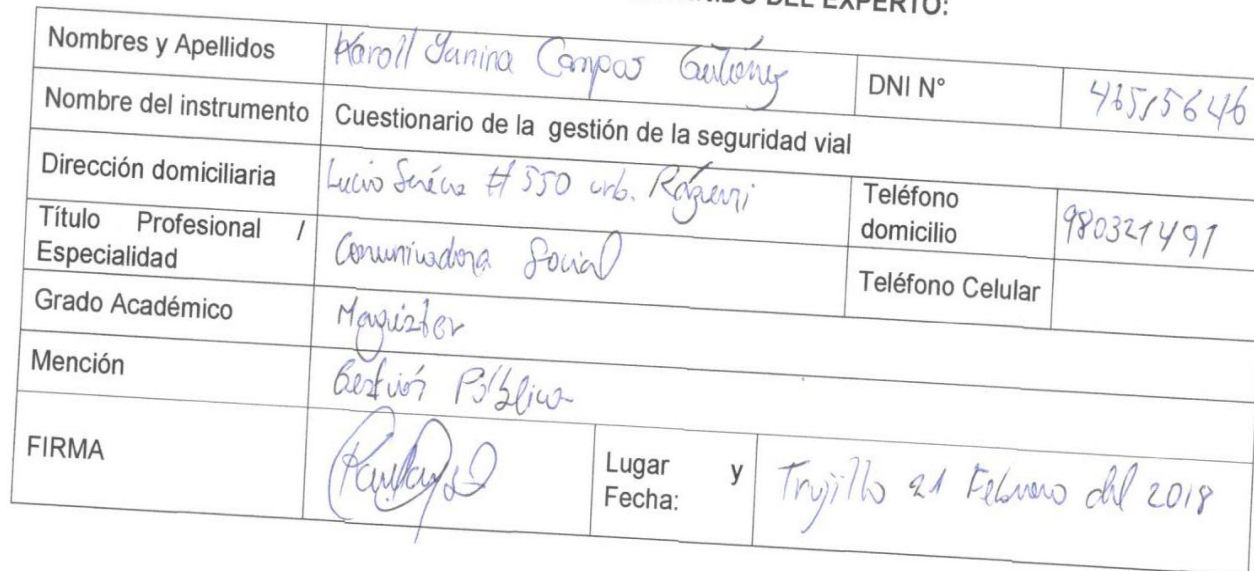 DEL EXPERTO:
Nombres y Apellidos Karoll Yanina Campos Gutiérrez DNI N° 46515646
Nombre del instrumento Cuestionario de la gestión de la seguridad vial
Dirección domiciliaria Lucio Séneca # 550 urb. Rázuri Teléfono domicilio 980321491
Título Profesional / Especialidad Comunicadora Social Teléfono Celular
Grado Académico Magister
Mención Gestión Pública
FIRMA Lugar y Fecha: Trujillo 21 Febrero del 2018